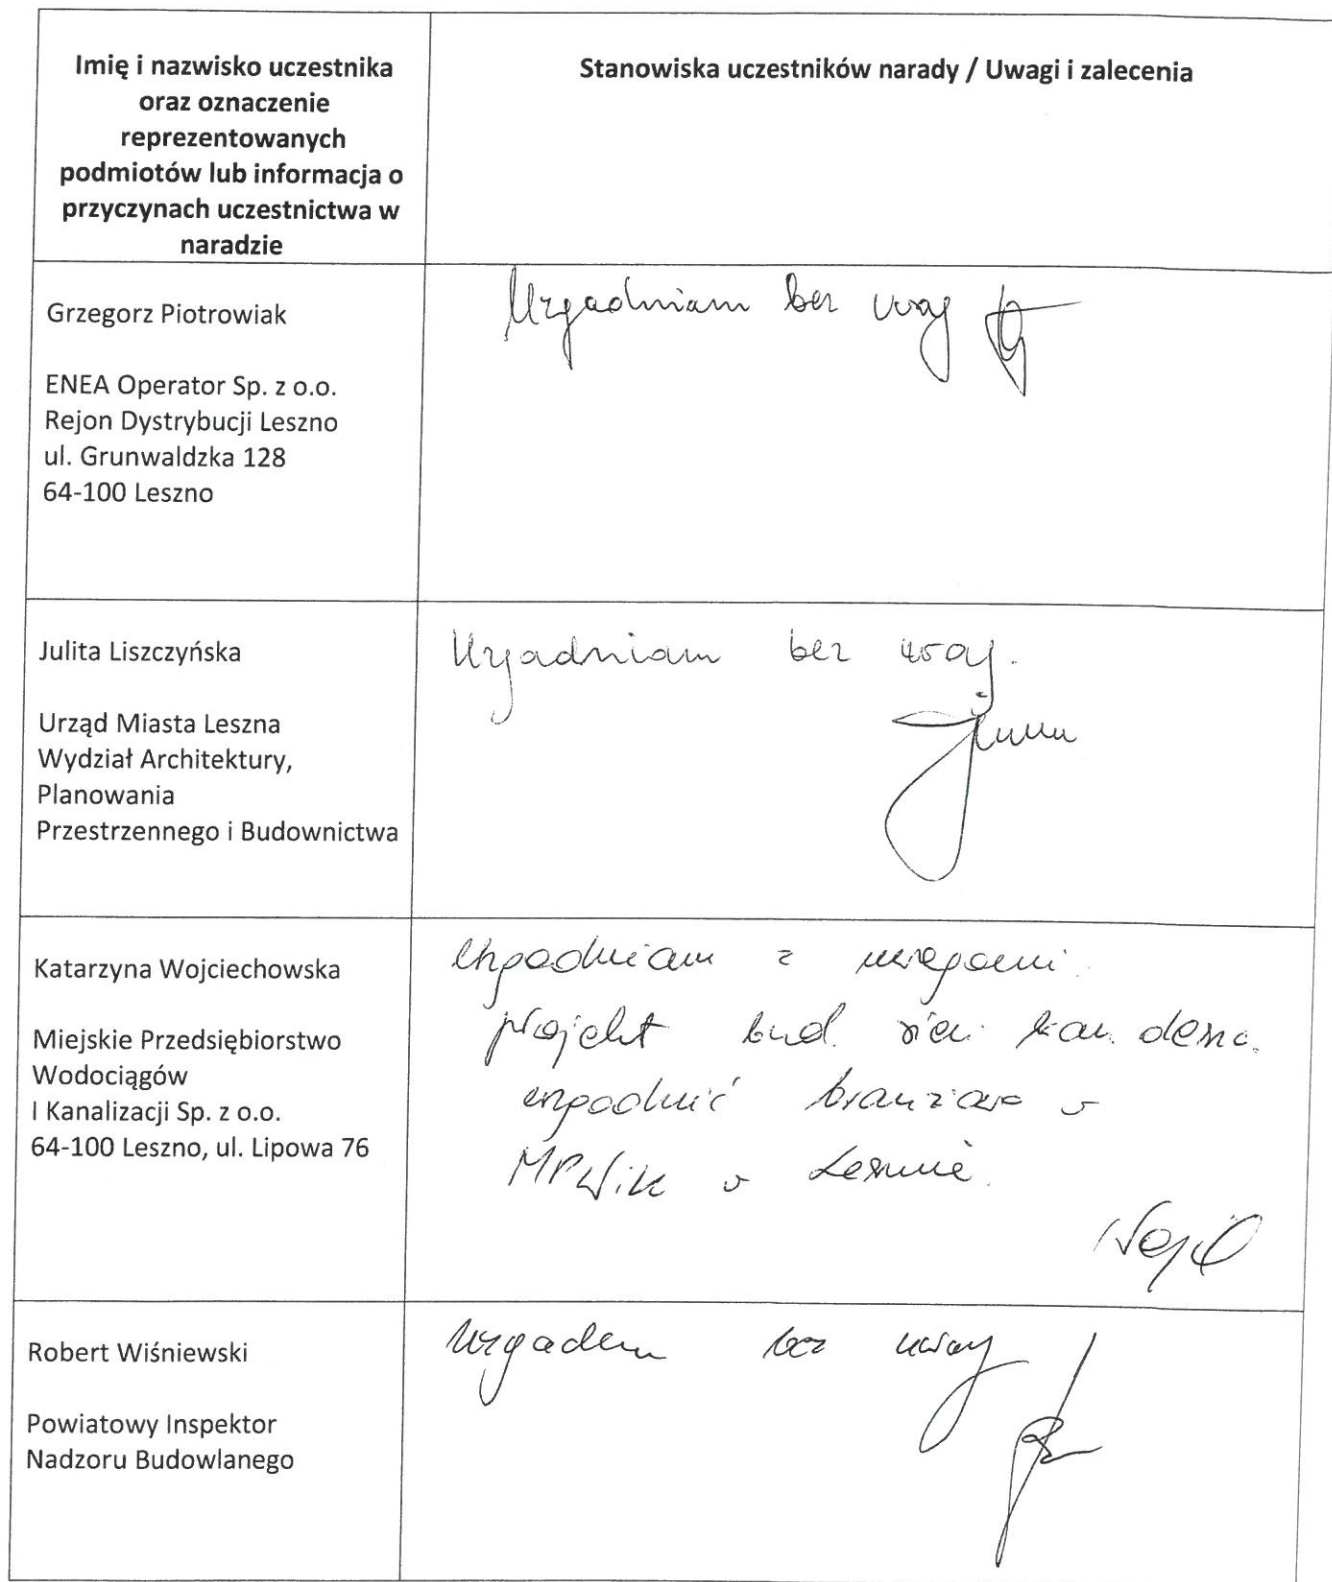 Imię i nazwisko uczestnika
oraz oznaczenie
reprezentowanych
podmiotów lub informacja o
przyczynach uczestnictwa w
naradzie
Stanowiska uczestników narady / Uwagi i zalecenia
Grzegorz Piotrowiak
ENEA Operator Sp. z o.o.
Rejon Dystrybucji Leszno
ul. Grunwaldzka 128
64-100 Leszno
Uzgadniam bez uwag
Julita Liszczyńska
Urząd Miasta Leszna
Wydział Architektury,
Planowania
Przestrzennego i Budownictwa
Uzgadniam bez uwag.
Katarzyna Wojciechowska
Miejskie Przedsiębiorstwo
Wodociągów
I Kanalizacji Sp. z o.o.
64-100 Leszno, ul. Lipowa 76
Uzgadniam z uwagami.
projekt bud. sieci kan. deszcz.
uzgodnić branżowo w
MPWiK w Lesznie.
Robert Wiśniewski
Powiatowy Inspektor
Nadzoru Budowlanego
bez uwag